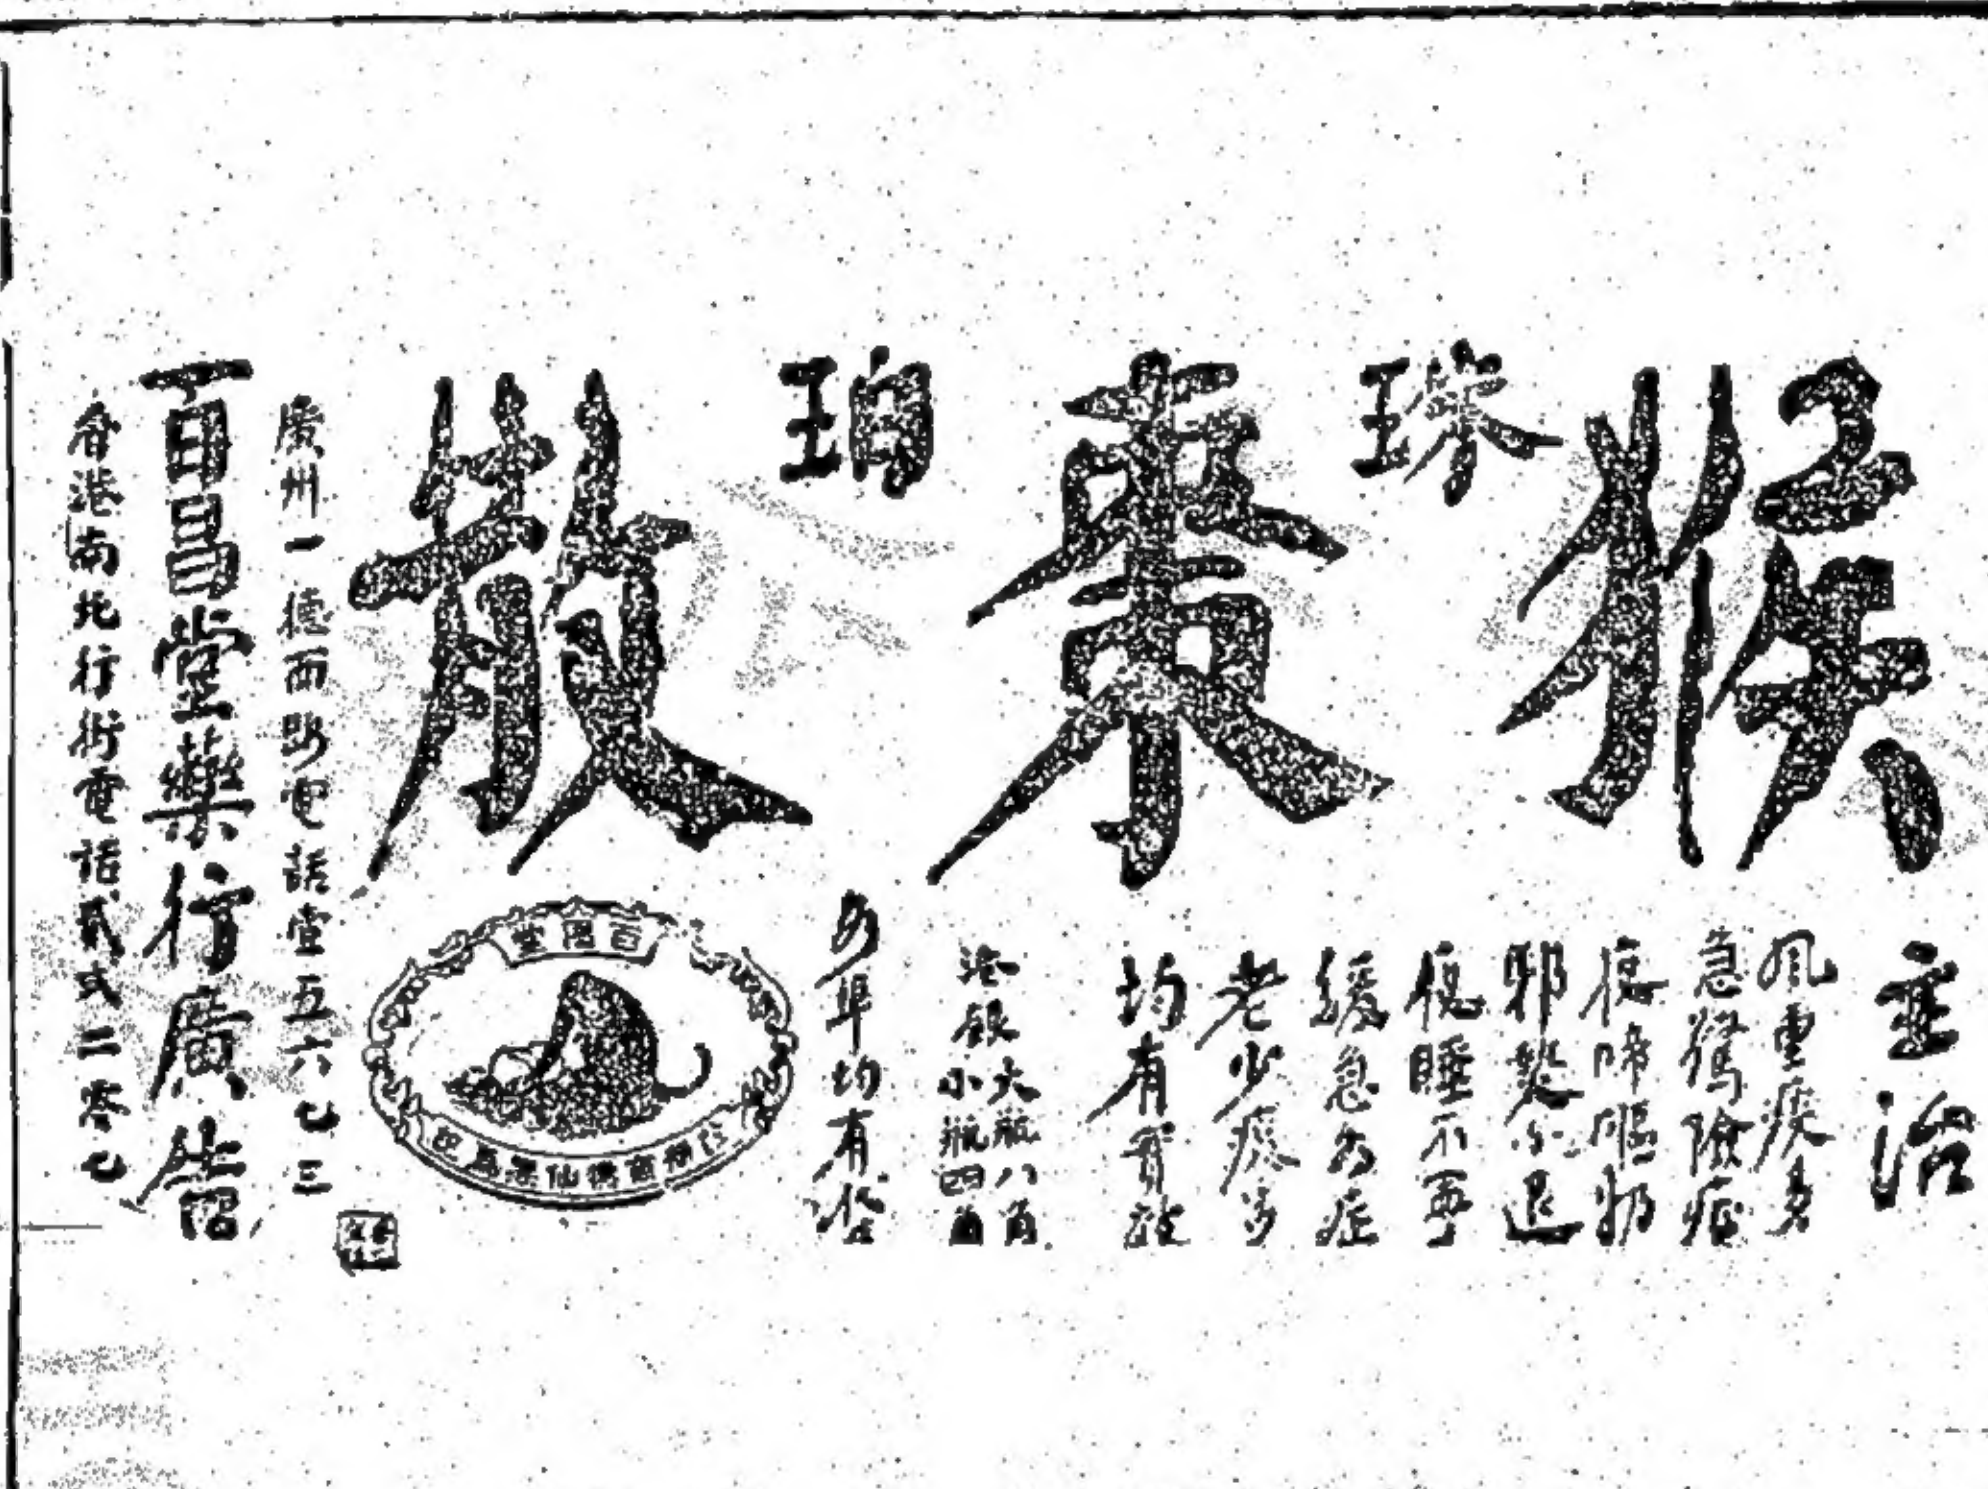 猴棗散
珍珀
主治
風重痰多
急驚險症
夜啼嘔奶
邪熱不退
夜睡不寧
緩急各症
老少痰多
均有奇效
港銀大瓶八角
小瓶四角
各埠均有代售
百昌堂
廣州一德西路電話壹五六七三
百昌堂藥行廣告
香港南北行街電話貳式二零七